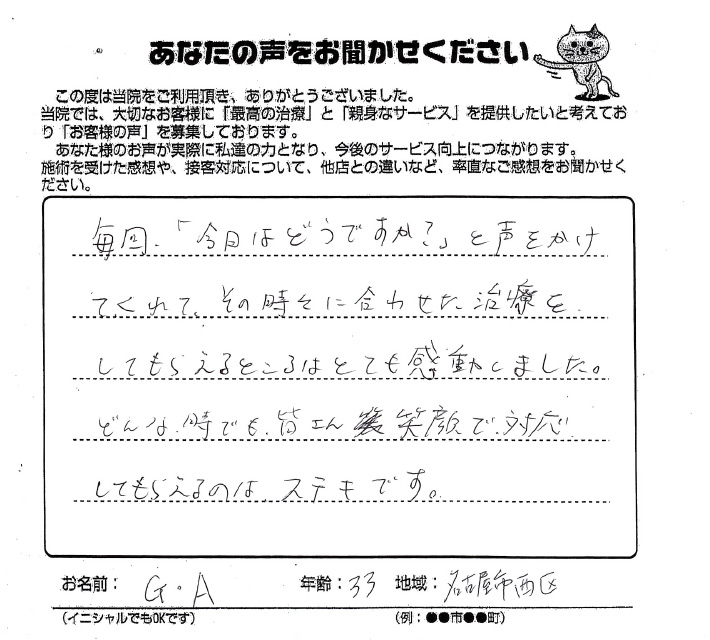 あなたの声をお聞かせください
この度は当院をご利用頂き、ありがとうございました。
当院では、大切なお客様に「最高の治療」と「親身なサービス」を提供したいと考えてお
り「お客様の声」を募集しております。
あなた様のお声が実際に私達の力となり、今後のサービス向上につながります。
施術を受けた感想や、接客対応について、他店との違いなど、率直なご感想をお聞かせく
ださい。
毎回、「今日はどうですか?」と声をかけ
てくれて、その時々に合わせた治療を
してもらえるところはとても感動しました。
どんな時でも皆さん笑顔で対応
してもらえるのはステキです。
お名前： G・A 年齢：33 地域：名古屋市西区
（イニシャルでもOKです） （例：●●市●●町）